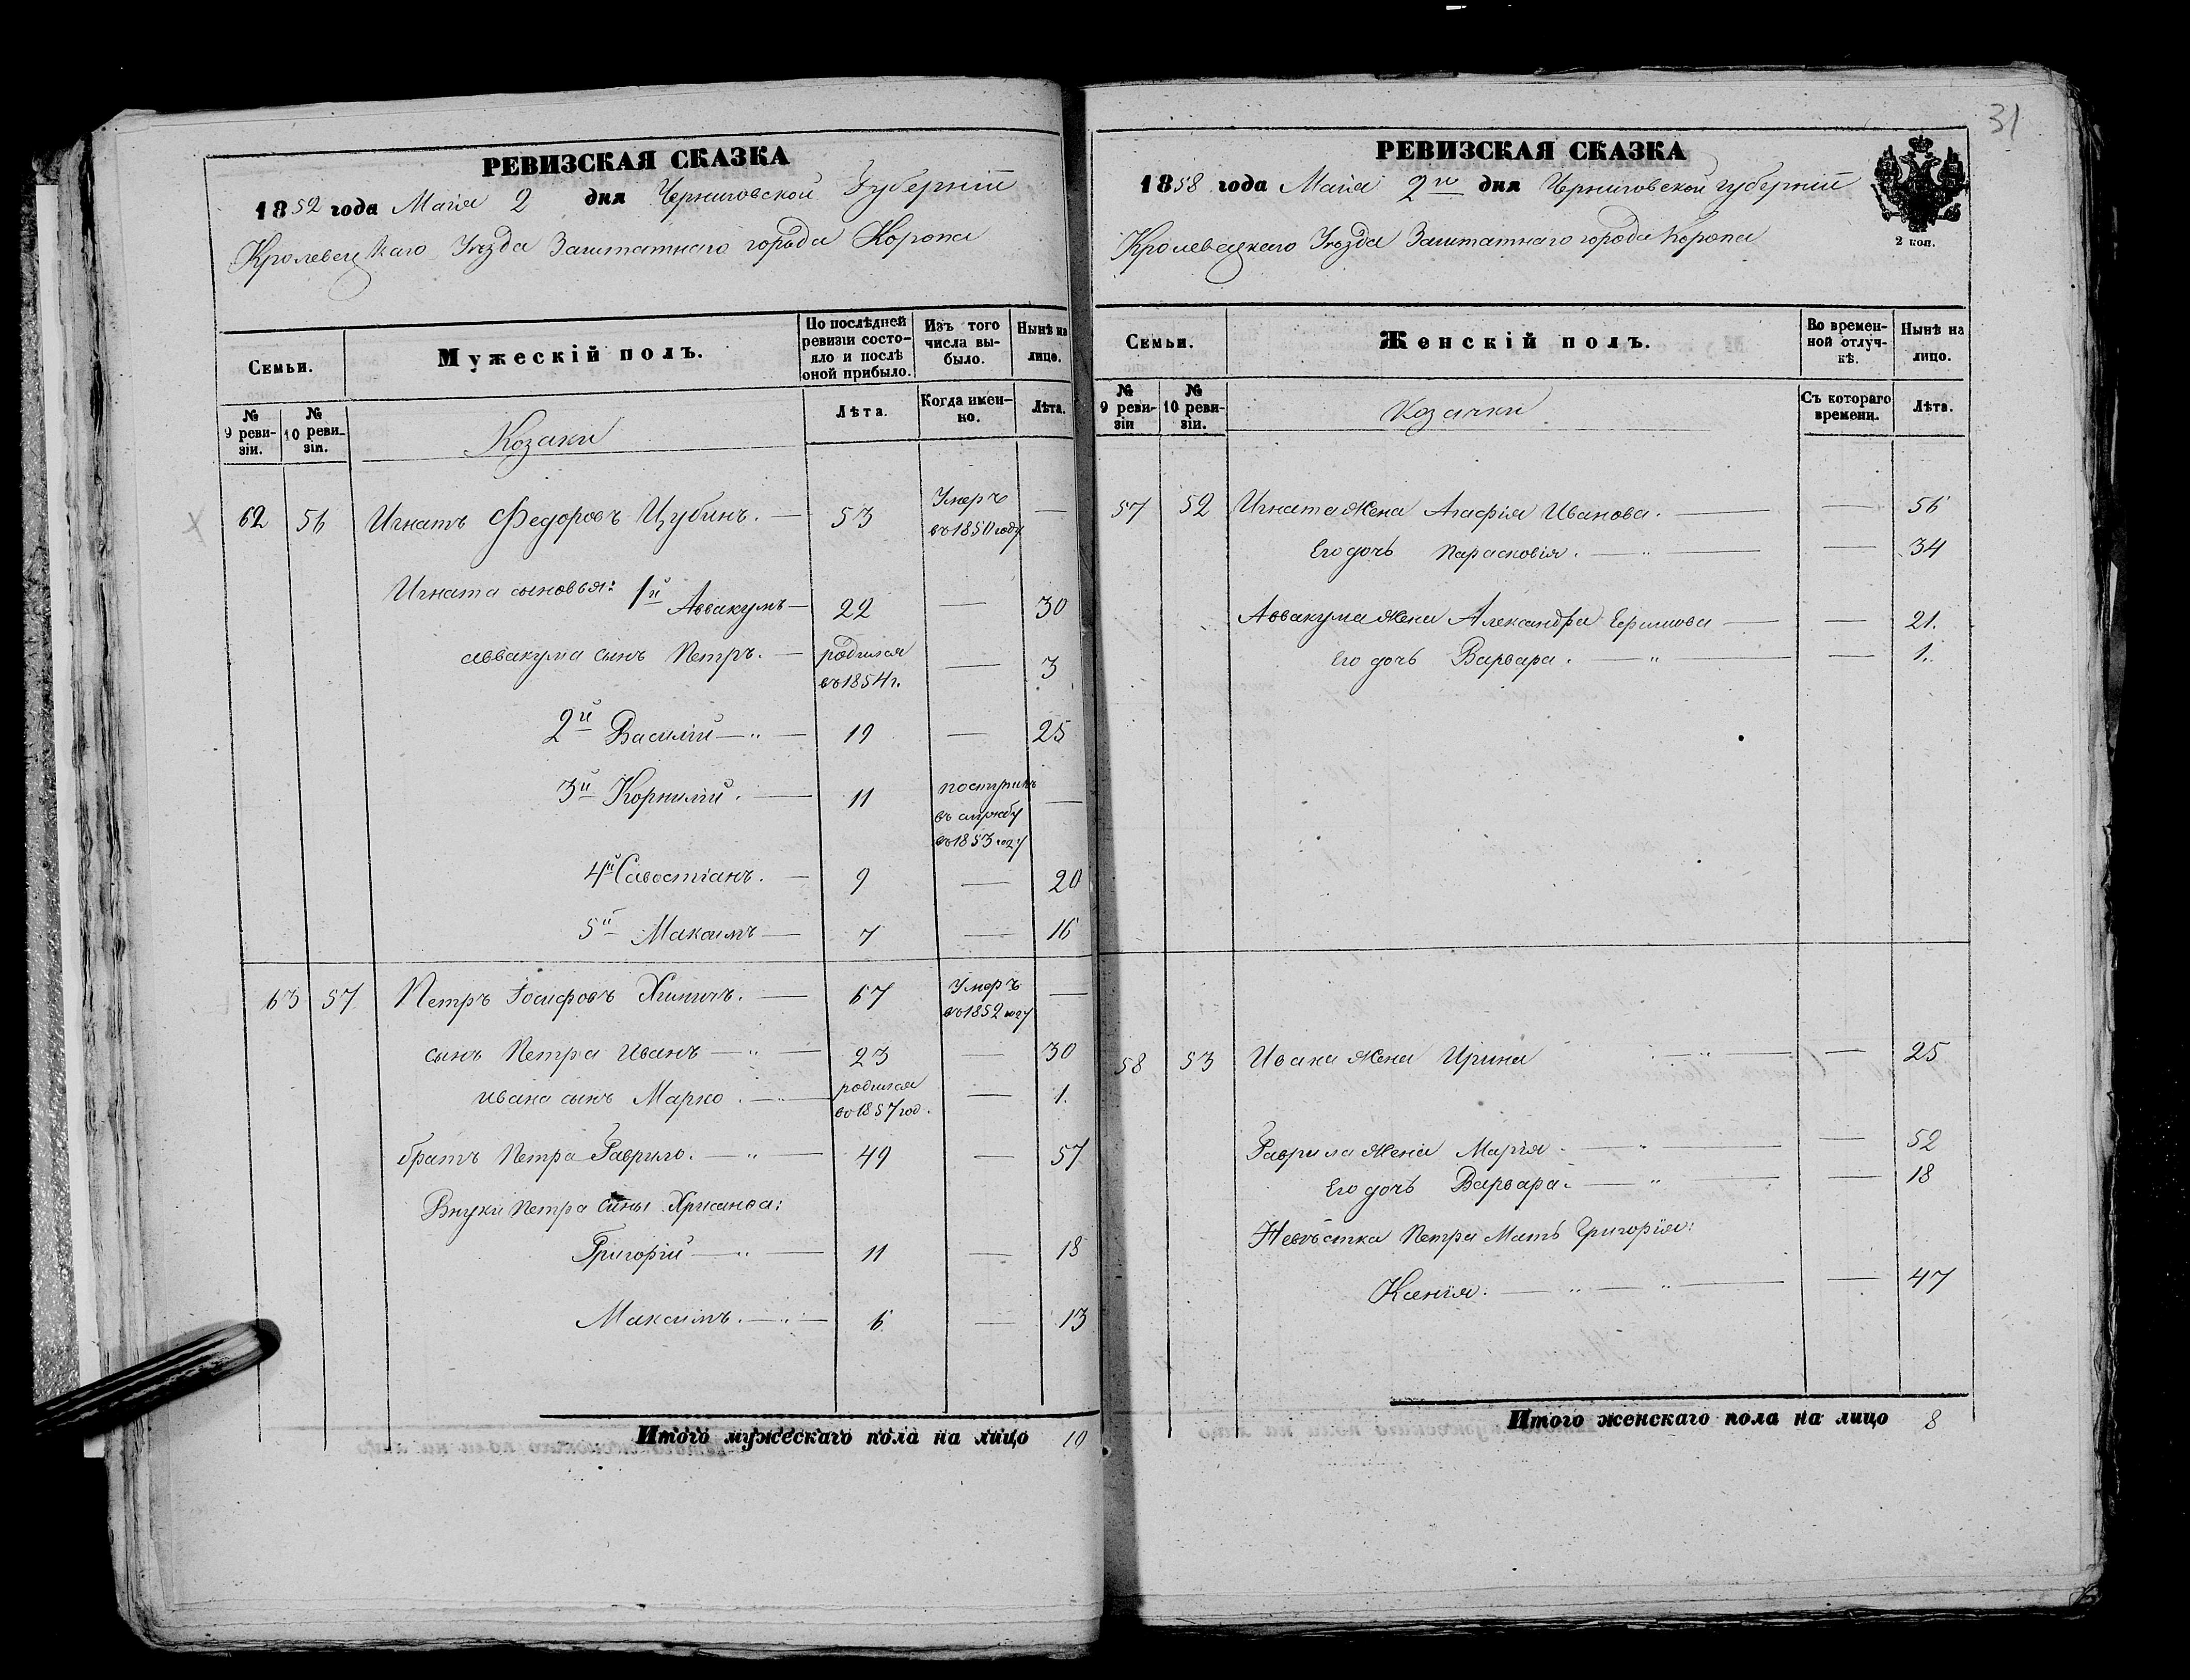 РЕВИЗСКАЯ СКАЗКА
1852 года Маія 2 дня Черниговской Губерніи
Кролевецкаго Уѣзда Заштатнаго города Коропа
Семьи.
Мужескій полъ.
По послѣдней ревизіи состо-
яло и послѣ
оной прибыло.
Изъ того
числа вы-
было.
Нынѣ на
лицо.
№
9 реви-
зіи.
№
10 реви-
зіи.
Козаки
Лѣта.
Когда имен-
но.
Лѣта.
62 56 Игнатъ Федоровъ Цубинъ. — 53 Умеръ въ 1850 году —
Игната сыновья: 1й Аввакумъ — 22 — 30
Аввакума сынъ Петръ. — родился въ 1854 г. — 3
2й Василій — " — 19 — 25
3й Корнилій. — 11 поступилъ въ службу въ 1853 году —
4й Савостіанъ. — 9 — 20
5й Максимъ — 7 — 16
63 57 Петръ Іосифовъ — 67 Умеръ въ 1852 году —
сынъ Петра Иванъ — " — 23 — 30
Ивана сынъ Марко. — " — родился въ 1857 год. — 1.
братъ Петра Гаврило. — " — 49 — 57
Внуки Петра сыны Хрисанфа:
Григорій — " — 11 — 18
Максимъ. — " — 6 — 13
Итого мужескаго пола на лицо 10
31
РЕВИЗСКАЯ СКАЗКА
1858 года Маія 2го дня Черниговской губерніи
Кролевецкаго Уѣзда Заштатнаго города Коропа
2 коп.
Семьи.
Женскій полъ.
Во времен-
ной отлуч-
кѣ.
Нынѣ на
лицо.
№
9 реви-
зіи
№
10 реви-
зіи.
Козачки
Съ котораго
времени.
Лѣта.
57 52 Игната жена Агафія Иванова. — — 56
Его дочь Парасковія. — " — — 34
Аввакума жена Александра Ефимова — — 21.
Его дочь Варвара. — " — — 1.
58 53 Ивана жена Ирина — " — — 25
Гаврила жена Марія. — " — — 52
Его дочь Варвара. — " — — 18
Невѣстка Петра Мать Григорія:
Ксенія. — " — " — — 47
Итого женскаго пола на лицо 8